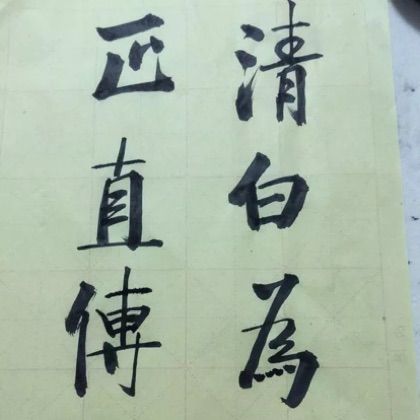 清白為
正直傳